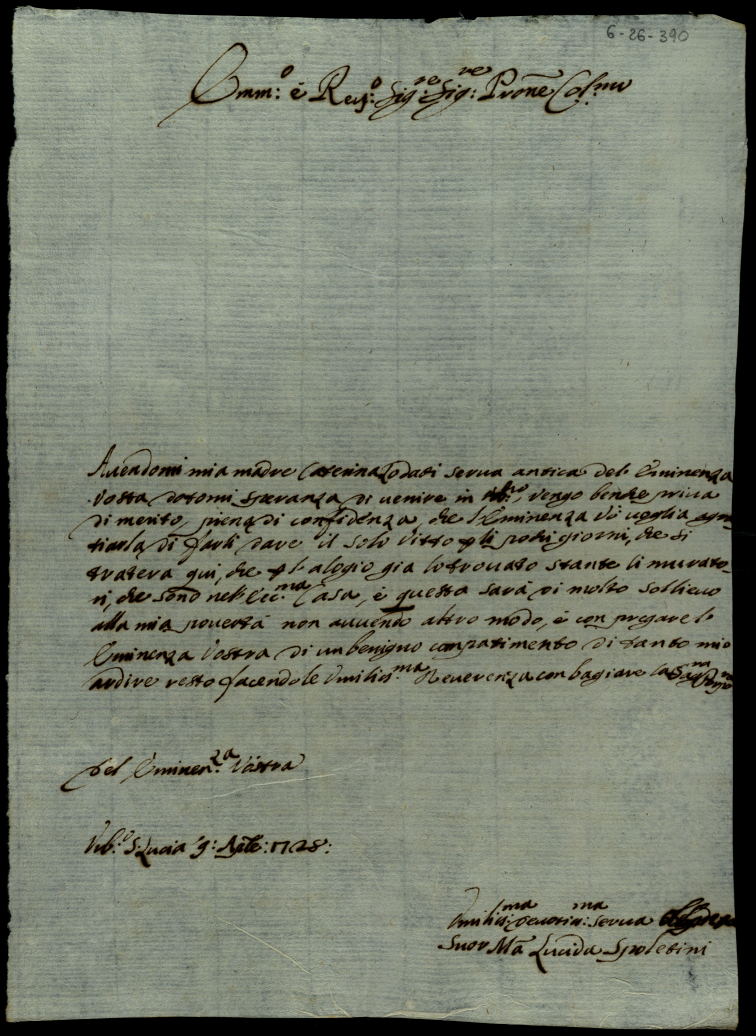 6-26-390
Emm:o è Re:o Sig:re Sig:re Prōne Col:mo
Avendomi mia madre Caterina Todati serva antica del Eminenza
Vosta datomi speranza di venire in vengo benche priva
di merito, piena di confidenza, che l'Eminenza Vā voglia
di farli dare il solo vitto p li pochi giorni, che si
tratera qui, che p l'alogio gia lo trovato stante li murato-
ri, che sono nell'Ecc:ma Casa, è questa sarà di molto sollievo
alla mia povertà non avendo altro modo, è con pregare l
Eminenza Vostra di un benigno compatimento di tanto mio
ardire resto facendole Umilis:ma Reverenza con bagiare la
Del Eminen:za Vostra
Urb:o S: Lucia 9: Aple: 1728:
Umilis:ma Devotis:ma serva
Suor Mā Lucida Spoletini